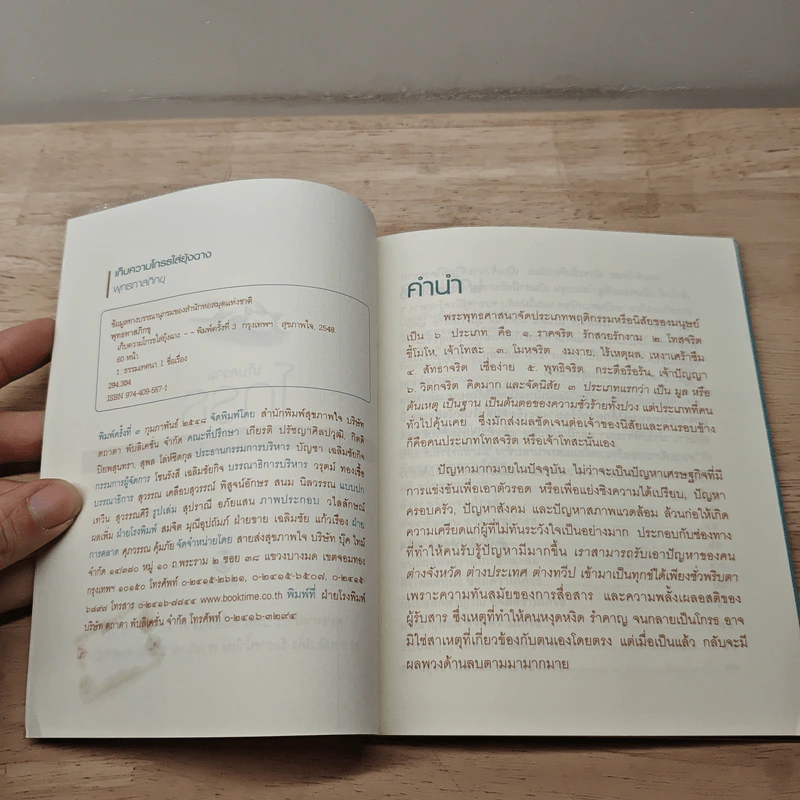 เก็บความโกรธใส่ยุ้งฉาง
พุทธทาสภิกขุ
ข้อมูลทางบรรณานุกรมของสำนักหอสมุดแห่งชาติ
พุทธทาสภิกขุ
เก็บความโกรธใส่ยุ้งฉาง. - - พิมพ์ครั้งที่ 3 กรุงเทพฯ : สุขภาพใจ, 2548
60 หน้า.
1. ธรรมเทศนา I ชื่อเรื่อง
294.304
ISBN 974-409-557-1
พิมพ์ครั้งที่ ๓ กุมภาพันธ์ ๒๕๔๘ จัดพิมพ์โดย สำนักพิมพ์สุขภาพใจ บริษัท
ตถาตา พับลิเคชั่น จำกัด คณะที่ปรึกษา เกียรติ ปรัชญาศิลปวุฒิ, กิตติ
ปิยพสุนทรา, สุพล โล่ห์ชิตกุล ประธานกรรมการบริหาร บัญชา เฉลิมชัยกิจ
กรรมการผู้จัดการ โชนรังสี เฉลิมชัยกิจ บรรณาธิการบริหาร วรุตม์ ทองเชื้อ
บรรณาธิการ สุวรรณ เคลือบสุวรรณ์ พิสูจน์อักษร สนม นิลวรรณ แบบปก
เทวัน สุวรรณศิริ รูปเล่ม สุปราณี อภัยแสน ภาพประกอบ วไลลักษณ์
ผลเพิ่ม ฝ่ายโรงพิมพ์ สมจิต มุณีอุปถัมภ์ ฝ่ายขาย เฉลิมชัย แก้วเรือง ฝ่าย
การตลาด ศุภวรรณ คุ้มภัย จัดจำหน่ายโดย สายส่งสุขภาพใจ บริษัท บุ๊ค ไทม์
จำกัด ๑๔/๓๗๐ หมู่ ๑๐ ถ.พระราม ๒ ซอย ๓๘ แขวงบางมด เขตจอมทอง
กรุงเทพฯ ๑๐๑๕๐ โทรศัพท์ ๐-๒๔๑๕-๒๖๒๑, ๐-๒๔๑๕-๖๕๐๗, ๐-๒๔๑๕-
๖๗๙๗ โทรสาร ๐-๒๔๑๖-๗๗๔๔ www.booktime.co.th พิมพ์ที่ ฝ่ายโรงพิมพ์
บริษัท ตถาตา พับลิเคชั่น จำกัด โทรศัพท์ ๐-๒๔๑๖-๓๒๙๔
คำนำ
พระพุทธศาสนาจัดประเภทพฤติกรรมหรือนิสัยของมนุษย์
เป็น ๖ ประเภท คือ ๑. ราคจริต รักสวยรักงาม ๒. โทสจริต
ขี้โมโห, เจ้าโทสะ ๓. โมหจริต งมงาย, ไร้เหตุผล, เหงาเศร้าซึม
๔. สัทธาจริต เชื่อง่าย ๕. พุทธิจริต กระตือรือร้น, เจ้าปัญญา
๖. วิตกจริต คิดมาก และจัดนิสัย ๓ ประเภทแรกว่า เป็น มูล หรือ
ต้นเหตุ เป็นฐาน เป็นต้นตอของความชั่วร้ายทั้งปวง แต่ประเภทที่คน
ทั่วไปคุ้นเคย ซึ่งมักส่งผลชัดเจนต่อเจ้าของนิสัยและคนรอบข้าง
ก็คือคนประเภทโทสจริต หรือเจ้าโทสะนั่นเอง
ปัญหามากมายในปัจจุบัน ไม่ว่าจะเป็นปัญหาเศรษฐกิจที่มี
การแข่งขันเพื่อเอาตัวรอด หรือเพื่อแย่งชิงความได้เปรียบ, ปัญหา
ครอบครัว, ปัญหาสังคม และปัญหาสภาพแวดล้อม ล้วนก่อให้เกิด
ความเครียดแก่ผู้ที่ไม่ทันระวังใจเป็นอย่างมาก ประกอบกับช่องทาง
ที่ทำให้คนรับรู้ปัญหามีมากขึ้น เราสามารถรับเอาปัญหาของคน
ต่างจังหวัด ต่างประเทศ ต่างทวีป เข้ามาเป็นทุกข์ได้เพียงชั่วพริบตา
เพราะความทันสมัยของการสื่อสาร และความพลั้งเผลอสติของ
ผู้รับสาร ซึ่งเหตุที่ทำให้คนหงุดหงิด รำคาญ จนกลายเป็นโกรธ อาจ
มิใช่สาเหตุที่เกี่ยวข้องกับตนเองโดยตรง แต่เมื่อเป็นแล้ว กลับจะมี
ผลพวงด้านลบตามมามากมาย